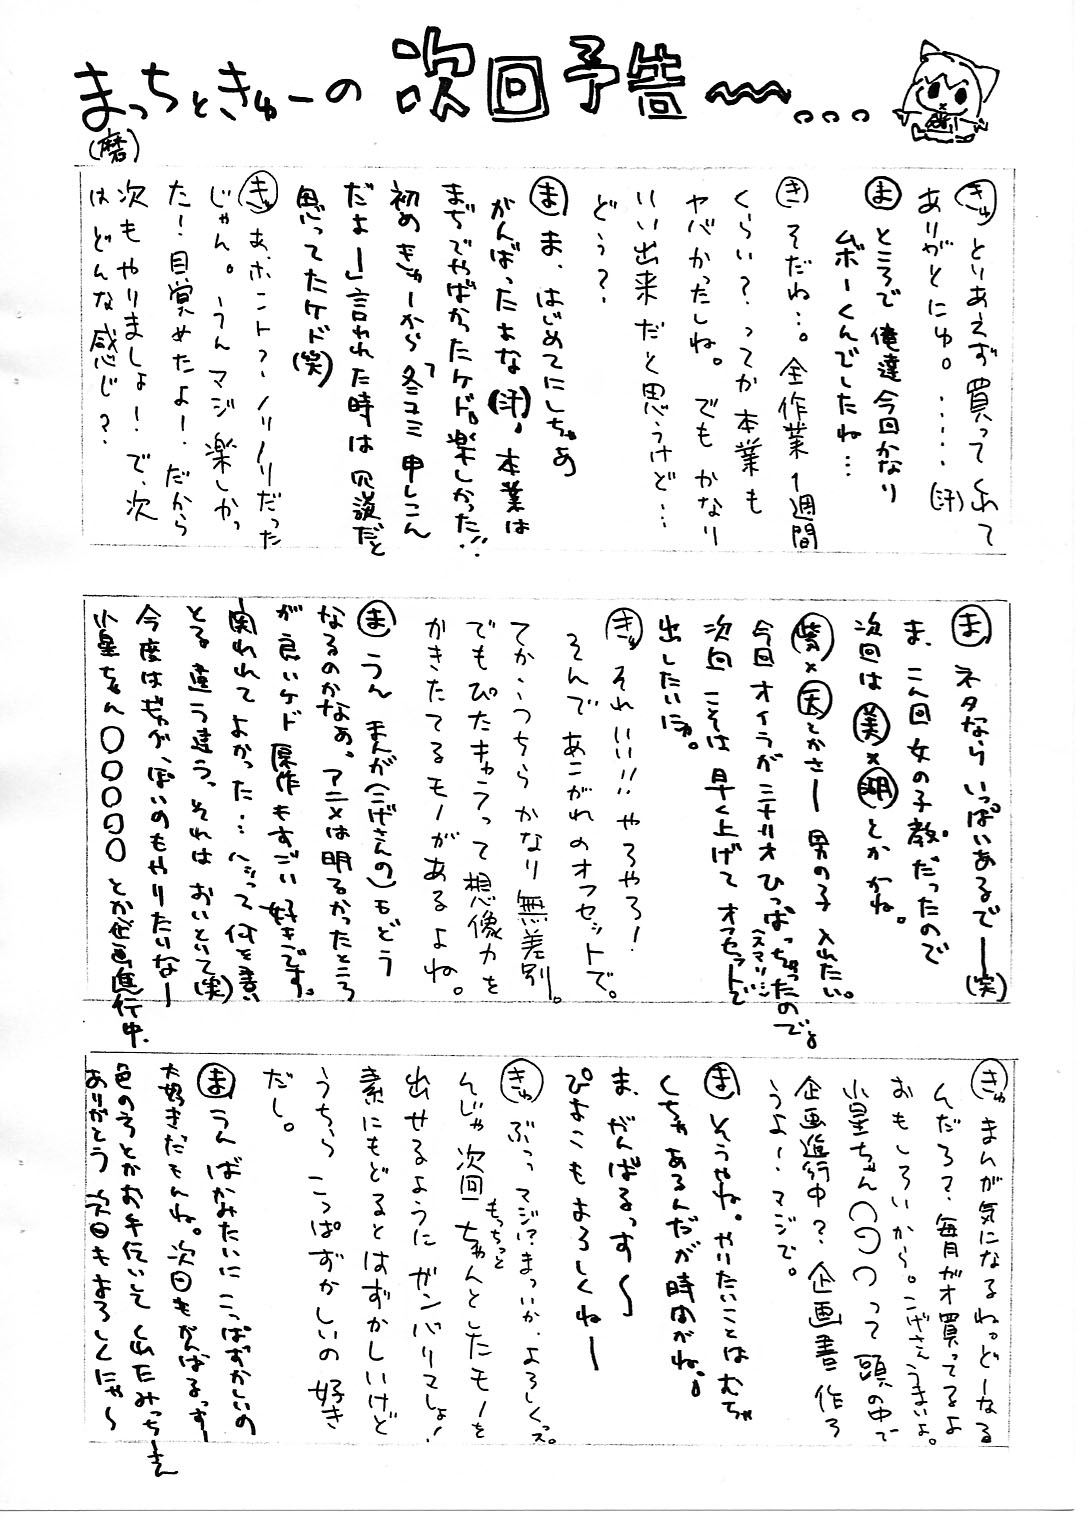 まっちときゅーの 次回予告〜〜...
(磨)
きゅ とりあえず買ってくれて
ありがとにゅ。……(汗)
ま ところで俺達今回かなり
ムボーくんでしたね…
き そだね…。全作業1週間
くらい?ってか本業も
ヤバかったしね。でもかなり
いい出来だと思うけど…
どう?
ま ま、はじめてにしちゃあ
がんばったよな(汗)。本業は
まぢでやばかったケド。楽しかった!!
初めきゅーから「冬コミ申しこん
だよー」言われた時は冗談だと
思ってたケド(笑)
きゅ あ、ホント?ノリノリだった
じゃん。うんマジ楽しかっ
たー!目覚めたよー。だから
次もやりましょ!で、次
はどんな感じ?
ま ネタならいっぱいあるでー(笑)
ま、こん回女の子教だったので
次回は美×湖とかかね。
紫×天とかさー 男の子入れたい。
今回オイラがシナリオひっぱっちゃったので。
次回こそは早く上げてオフセットで
出したいにゃ。
きゅ それいい!!やろやろ!
そんであこがれのオフセットで。
てか、うちらかなり無差別。
でもぴたキャラって想像力を
かきたてるモノがあるよね。
ま うん まんが(こげさんの)もどう
なるのかなぁ。アニメは明るかったところ
が良いケド 原作もすごい好きです。
買れれてよかった…へって何を書い
とる 違う違うっ それはおいといて(笑)
今度はギャグっぽいのもやりたいなー
小星ちゃん〇〇〇〇〇とか企画進行中.
きゅ まんが気になるねっどーなる
んだろ?毎月ガオ買ってるよ
おもしろいから。こげさんうまいよ。
小星ちゃん〇〇〇って頭の中で
企画進行中?企画書作ろ
うよー、マジで。
ま そうやね。やりたいことはむちゃ
くちゃあるんだが時間がね。
ま、がんばるっす〜
ぴよこもよろしくねー
きゅ ぶっっマジ!?まっいか、よろしくっス。
んじゃ次回もっちっとちゃんとしたモノを
出せるようにガンバリマしょ!
素にもどるとはずかしいけど
うちらこっぱずかしいの好き
だし。
ま うん ばかみたいにこっぱずかしいの
大好きだもんね。次回もがんばるっすー
色のろとかお手伝いしてくれたみっちーさん
ありがとう 次回もよろしくにゃ〜